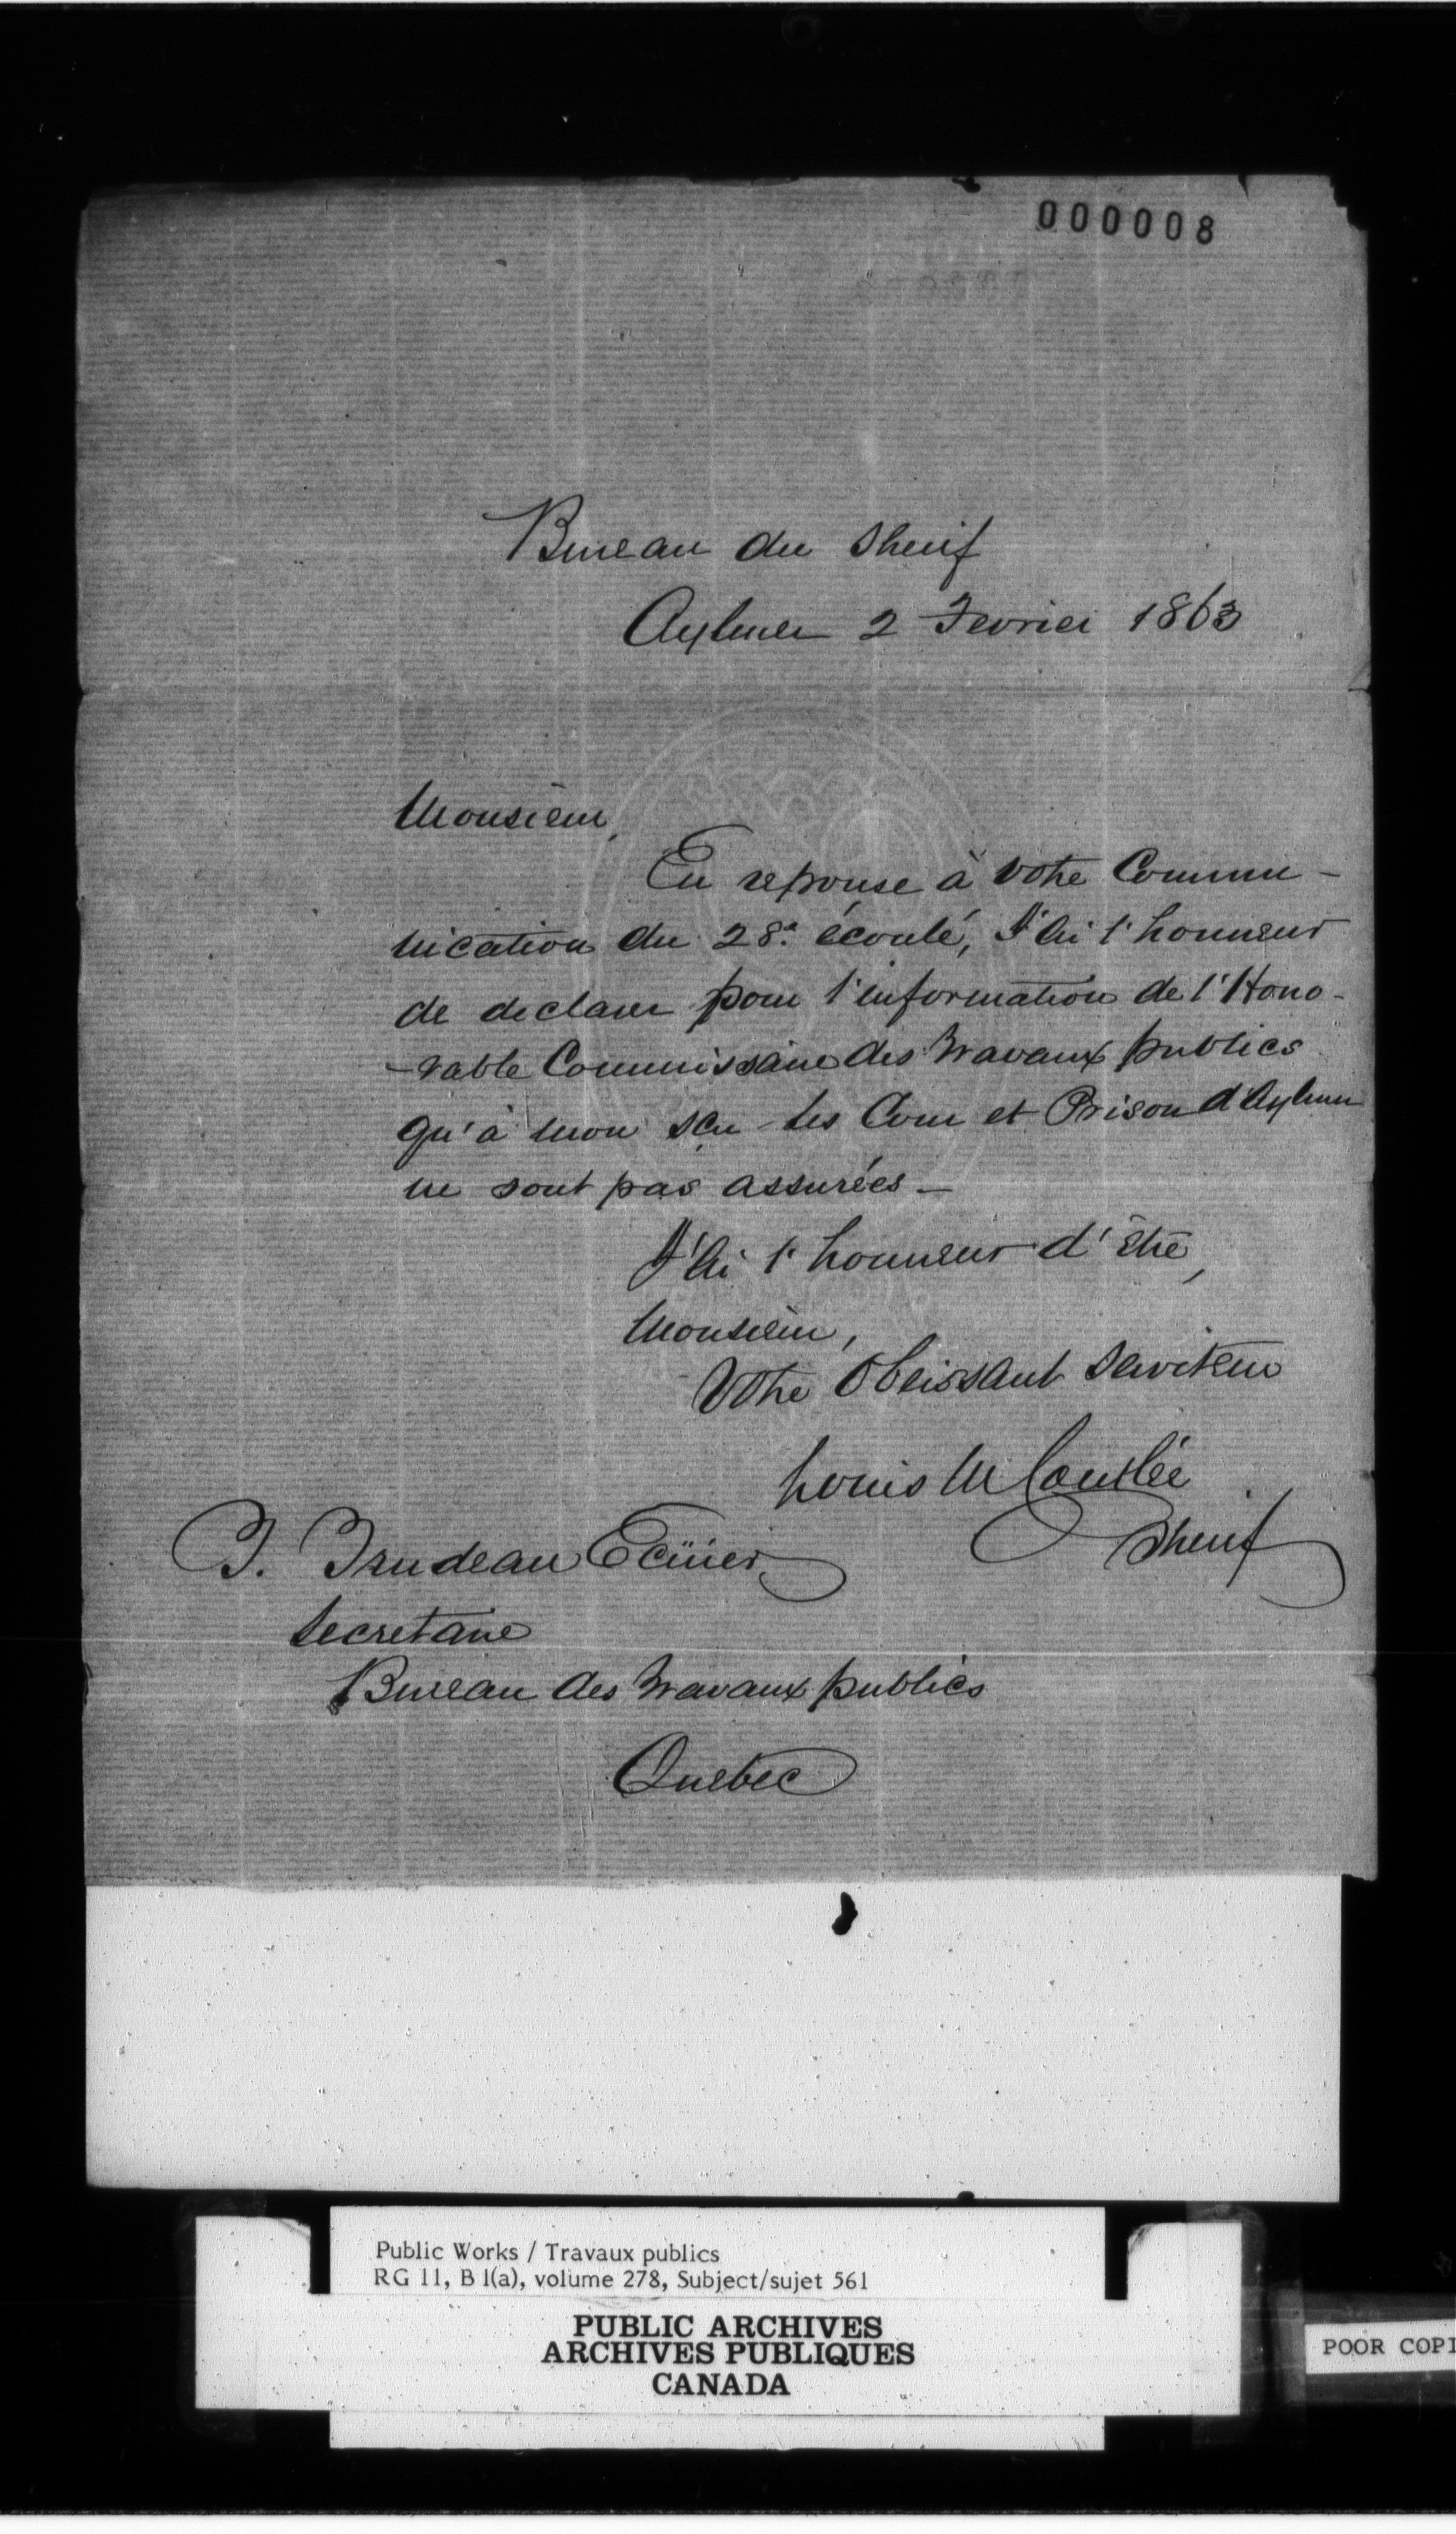 000008
Bureau du Sherif
Aylmer 2 Fevrier 1863
Monsieur,
En reponse à votre Commu-
nication du 28. écoulé, J'ai l'honneur
de declarer pour l'information de l'Hono-
-rable Commissaire des Travaux publics
qu'à mon sçu les Cour et Prison d'Aylmer
ne sont pas assurées -
J'ai l'honneur d'être,
Monsieur,
Votre Obeissant Serviteur
Louis M Coutlée
Sherif
T. Trudeau Ecüier,
Secretaire
Bureau des Travaux publics
Quebec
Public Works / Travaux publics
RG 11, B 1(a), volume 278, Subject/sujet 561
PUBLIC ARCHIVES
ARCHIVES PUBLIQUES
CANADA
POOR COPI